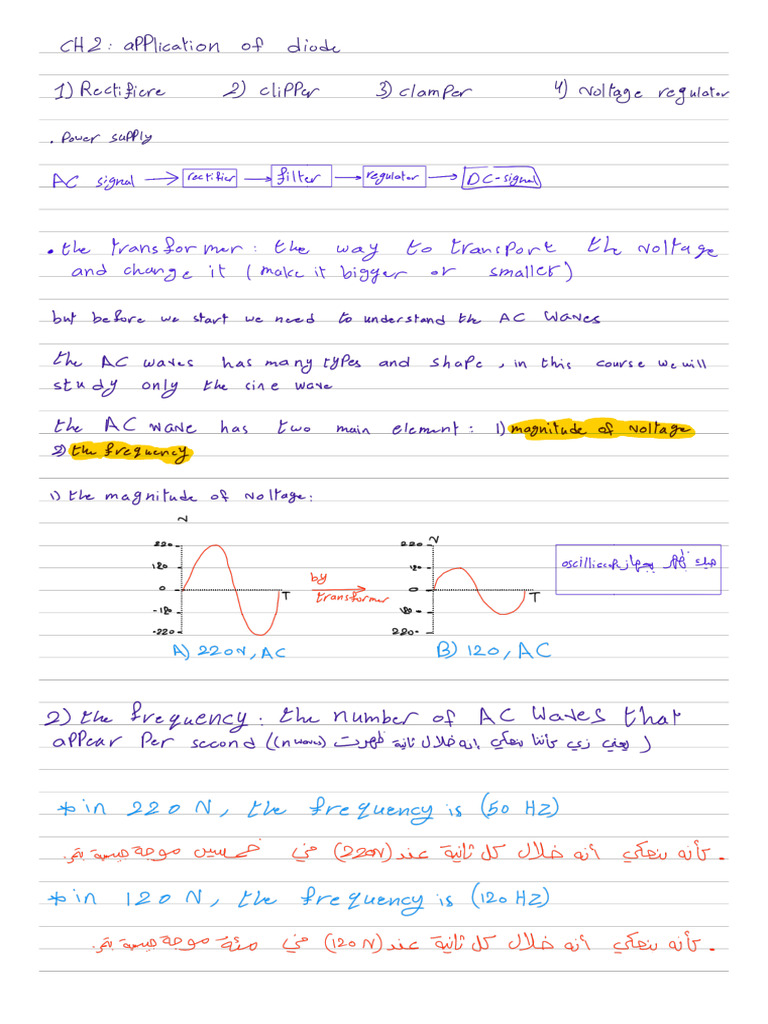 CH2: application of diode
1) Rectifiere 2) clipper 3) clamper 4) Voltage regulator
. Power supply
AC signal → rectifier → filter → regulator → DC-signal
• the transformer : the way to transport the voltage
and change it ( make it bigger or smaller )
but before we start we need to understand the AC waves
the AC waves has many types and shape , in this course we will
study only the sine wave
the AC wave has two main element : 1) magnitude of voltage
2) the frequency
1) the magnitude of voltage :
V
220
120
0
-120
-220
T
by
transformer
V
220
120
0
120
220
T
بجهاز
A) 220V, AC
B) 120, AC
2) the frequency : the number of AC waves that
appear Per second ((n waves) يعني زي كأننا بنحكي انه خلال ثانية ظهرت )
* in 220 V, the frequency is (50 HZ)
. كأنه بنحكي أنه خلال كل ثانية عند (220V) في خمسين موجة جيبية بتمر.
* in 120 V, the frequency is (120 HZ)
. كأنه بنحكي أنه خلال كل ثانية عند (120V) في مئة موجة جيبية بتمر.